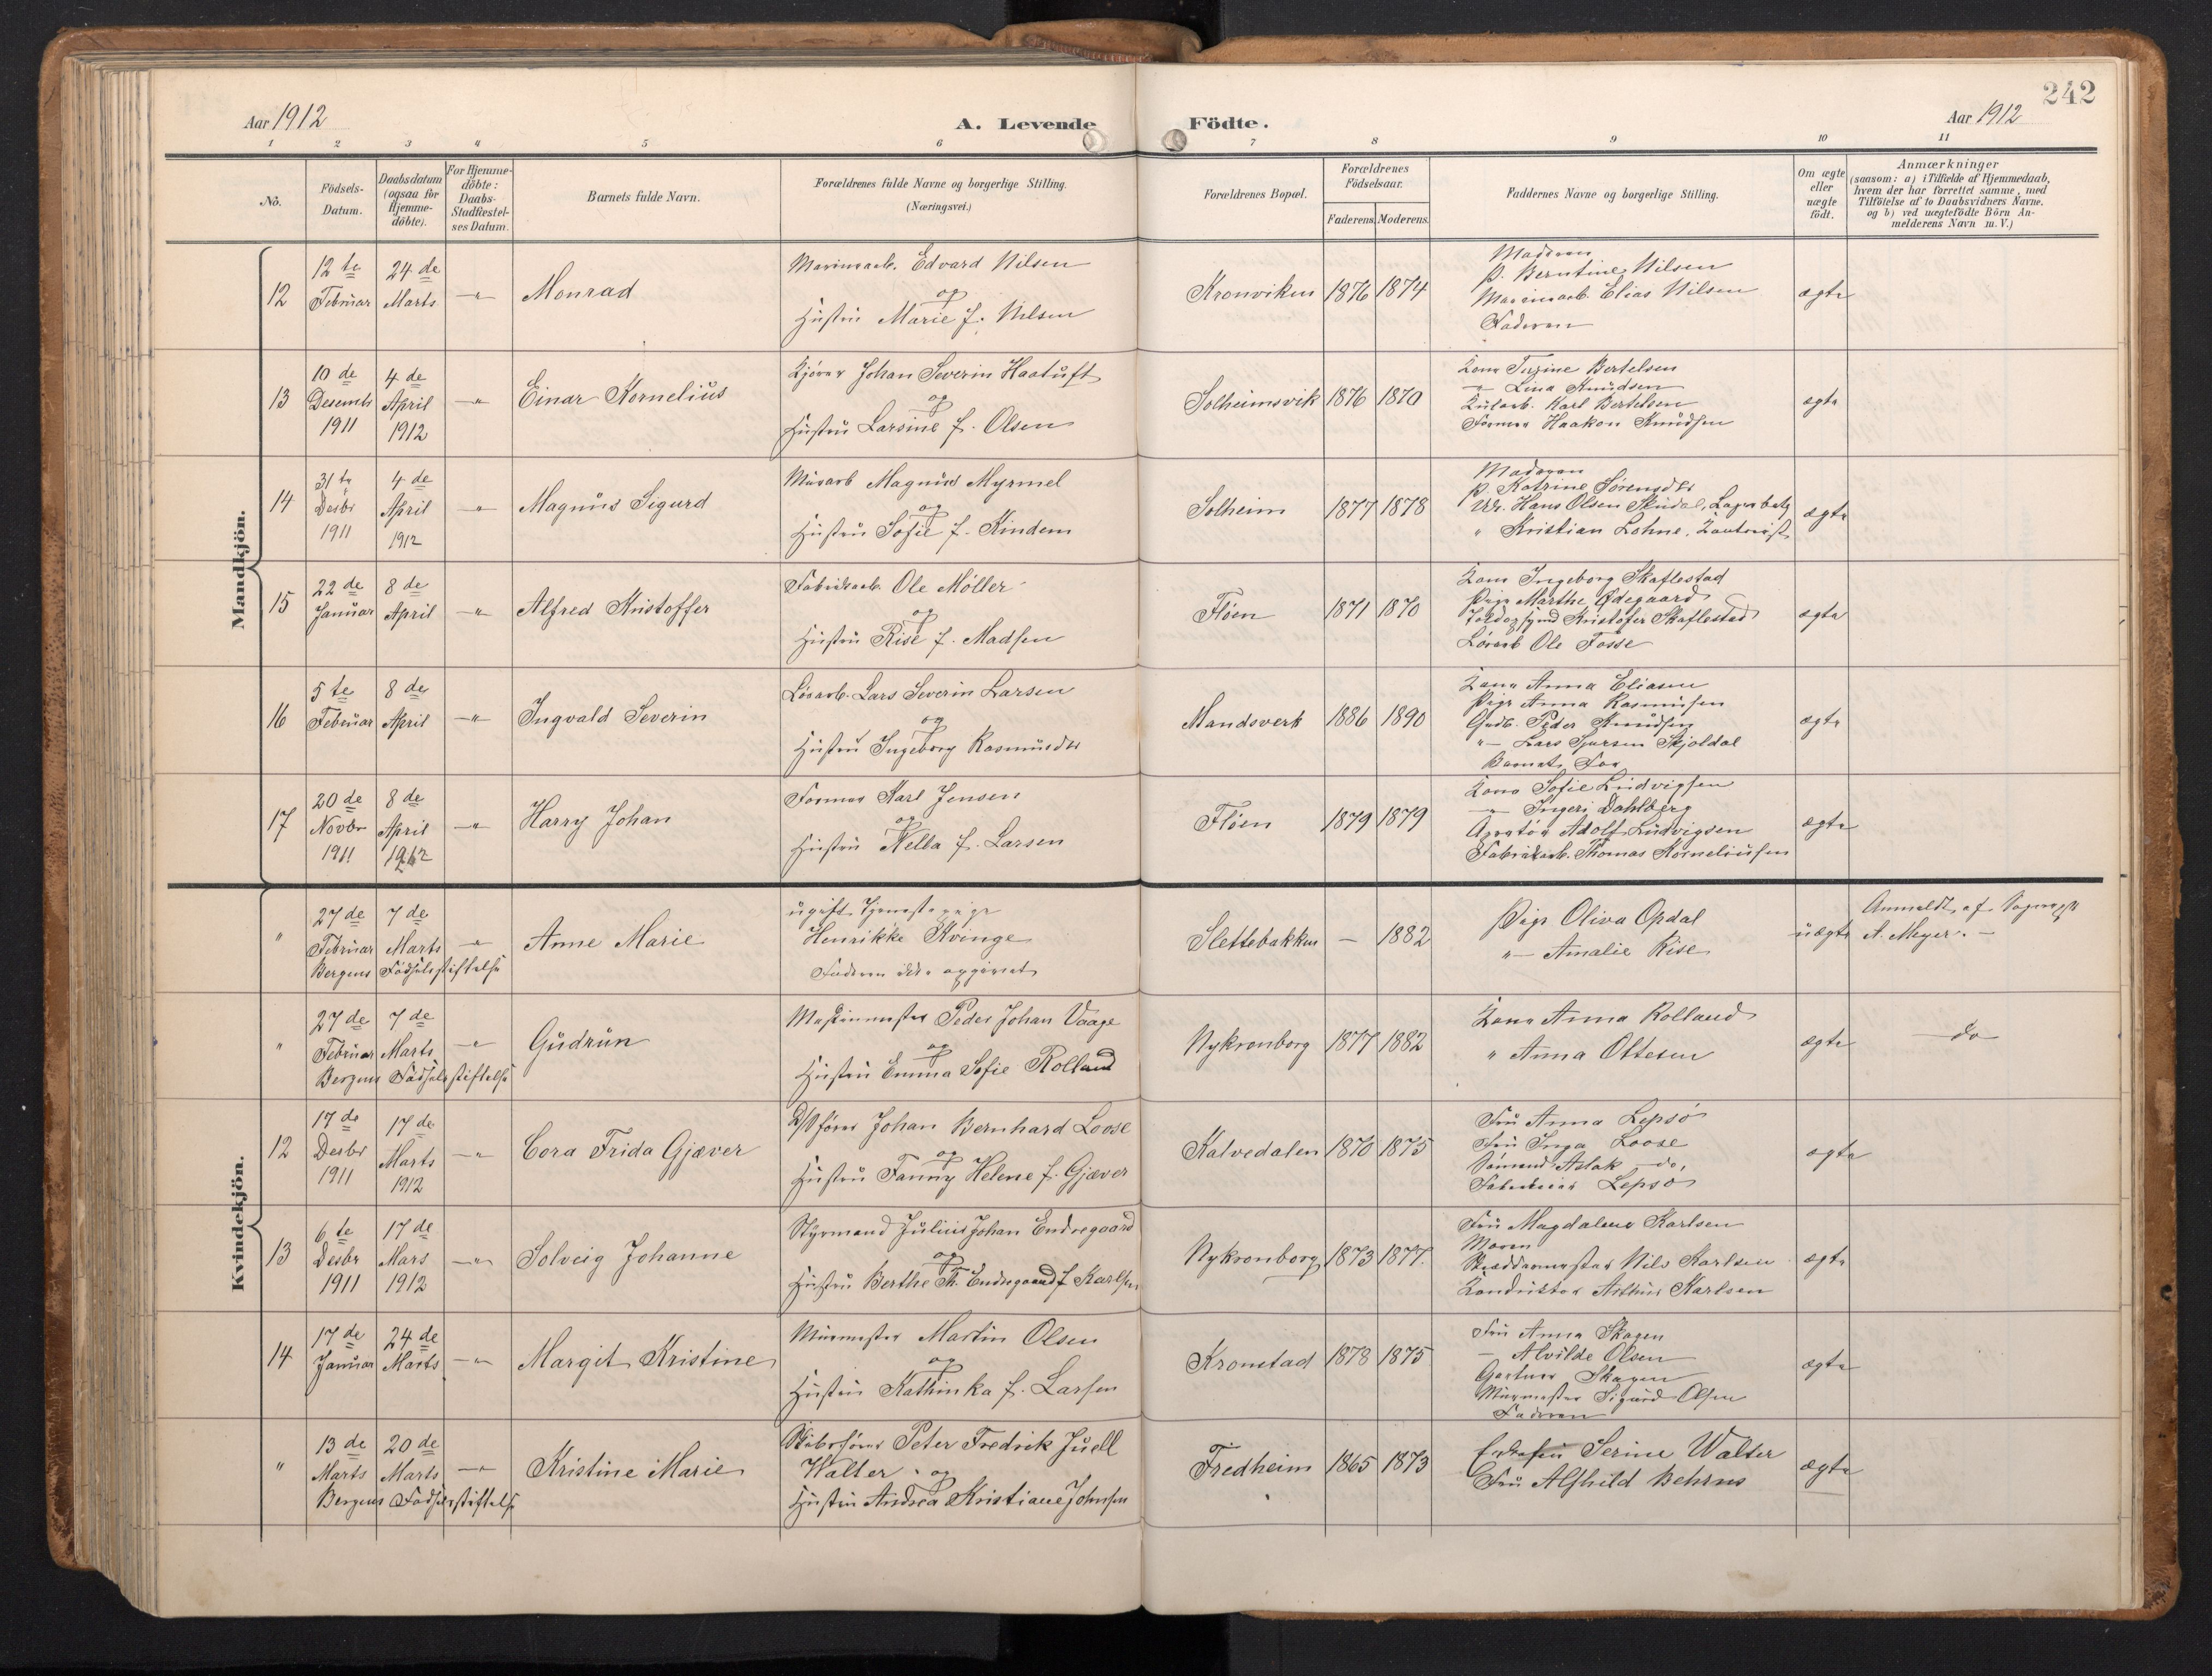 242
Aar 1912
A. Levende Födte.
Aar 1912
1 2 3 4 5 6 7 8 9 10 11
No.
Födsels-
Datum.
Daabsdatum
(ogsaa for
Hjemme-
döbte).
For Hjemme-
döbte:
Daabs-
Stadfæstel-
ses Datum.
Barnets fulde Navn.
Forældrenes fulde Navne og borgerlige Stilling.
(Næringsvei.)
Forældrenes Bopæl.
Forældrenes
Födselsaar.
Faderens. Moderens.
Faddernes Navne og borgerlige Stilling.
Om ægte
eller
uægte
födt.
Anmærkninger
(saasom: a) i Tilfælde af Hjemmedaab,
hvem der har forrettet samme, med
Tilföielse af to Daabsvidners Navne.
og b) ved uægtefödte Börn An-
melderens Navn m. V.)
Mandkjön.
12
12 te
Februar
24 de
Marts
Monrad
Edvard Nilsen
og
Hustru Marie f. Nilsen
Kronviken 1876 1874
Moderen
P. Berntine Nilsen
Elias Nilsen
Faderen
ægte
13
10 de
Desemb
1911
4 de
April
1912
Einar Kornelius
Kjører Johan Severin Haatuft
og
Hustru Larsine f. Olsen
Solheimsvik 1876 1870
Kone Bertelsen
" Lina Knudsen
Karl Bertelsen
Former Haakon Knudsen
ægte
14
31 te
Desbr
1911
4 de
April
1912
Magnus Sigurd
Murarb Magnus Myrmel
og
Hustru Sofie f. Kindem
Solheim 1877 1878
Moderen
P. Katrine Sørensdtr
Hans Olsen
" Kristian Lohne
ægte
15
22 de
Januar
8 de
April
Alfred Kristoffer
Fabrikarb. Ole Möller
og
Hustru Rise f. Madsen
Flöen 1871 1870
Kone Ingeborg Skaflestad
Pige Marthe Ødegaard
Kristofer Skaflestad
Løsarb Ole Fosse
ægte
16
5 te
Februar
8 de
April
Ingvald Severin
Løsarb. Lars Severin Larsen
og
Hustru Ingeborg Rasmusdtr
Mandsverk 1886 1890
Kone Anna Eliasen
Pige Anna Rasmussen
Gudb. Peder Knudsen
"— Lars Skjoldal
Barnets Far
ægte
17
20 de
Novbr
1911
8 de
April
1912
Harry Johan
Former Karl Jensen
og
Hustru Nella f. Larsen
Flöen 1879 1879
Kone Sofie Ludvigsen
" Ingeri Dahlberg
Adolf Ludvigsen
Fabrikarb. Thomas Korneliussen
ægte
Kvindekjön.
"
27 de
Februar
7 de
Marts
Bergens Födselsstiftelse
Anne Marie
ugift Tjenestepige
Henrikke Kvinge
Faderen ikke opgivet
Slettebakken — 1882
Pige Oliva Opdal
"— Amalie Rise
uægte
Anmeldt af
A. Meyer. —
"
27 de
Februar
7 de
Marts
Bergens Födselsstiftelse
Gudrun
Maskinmester Peder Johan Vaage
og
Hustru Emma Sofie Rolland
Nykronborg 1877 1882
Kone Anna Rolland
" Anna Ottesen
ægte
do
12
17 de
Desbr
1911
17 de
Marts
1912
Cora Frida Gjæver
D/S fører Johan Bernhard Loose
og
Hustru Fanny Helene f. Gjæver
Kalvedalen 1870 1875
Fru Anna Lepsö
Fru Inga Loose
Sömand Aslak do.
Lepsö
ægte
13
6 te
Desbr
1911
17 de
Mars
1912
Solveig Johanne
Styrmand Julius Johan Endregaard
og
Hustru Berthe Th. Endregaard f Karlsen
Nykronborg 1873 1877.
Fru Magdalene Karlsen
Moren
Skræddermester Nils Karlsen
Konduktør Arthur Karlsen
ægte
14
17 de
Januar
24 de
Marts
Margit Kristine
Murmester Martin Olsen
og
Hustru Kathinka f. Larsen
Kronstad 1878 1875
Fru Anna Skagen
— Alvilde Olsen
Gartner Skagen
Murmester Sigurd Olsen
Faderen
ægte
"
13 de
Marts
20 de
Marts
Bergens Födselsstiftelse
Kristine Marie
Skibsfører Peter Fredrik Juell
Walter. og
Hustru Andrea Kristiane Johnsen
Fredheim 1865 1873
Serine Walter
Fru Alfhild Behrns
ægte